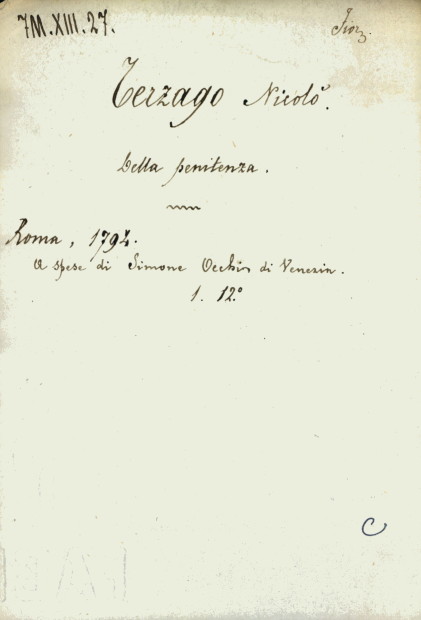 7M.XIII.27.
Terzago Nicolò.
Della penitenza.
Roma, 1794.
A spese di Simone Occhi di Venezia.
1. 12.º
C